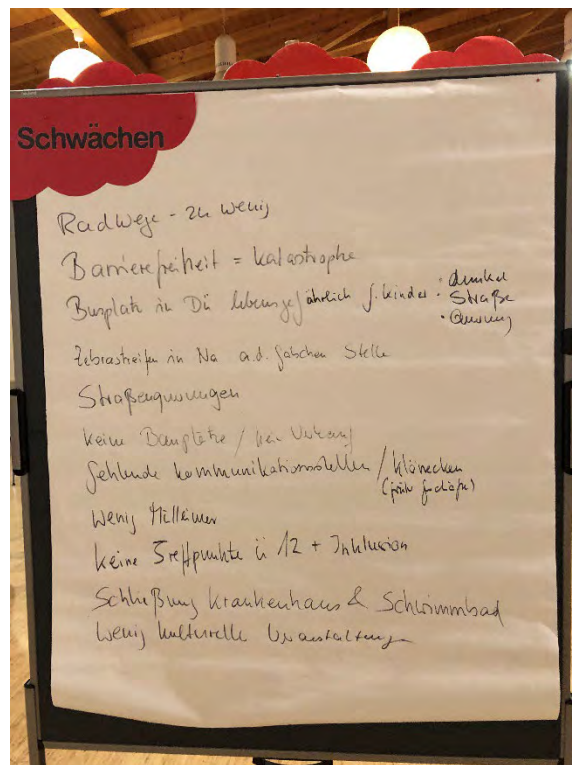 Schwächen
Radwege - zu wenig
Barrierefreiheit = Katastrophe
Busplatz in Dü lebensgefährlich f. Kinder · dunkel
· Straße
· Querung
Zebrastreifen in Na a.d. falschen Stelle
Straßenquerungen
keine Bauplätze / kein Verkauf
fehlende Kommunikationsstellen / Klönecken
(früher
Wenig Mülleimer
keine Treffpunkte ü 12 + Inklusion
Schließung Krankenhaus & Schwimmbad
Wenig kulturelle Veranstaltungen